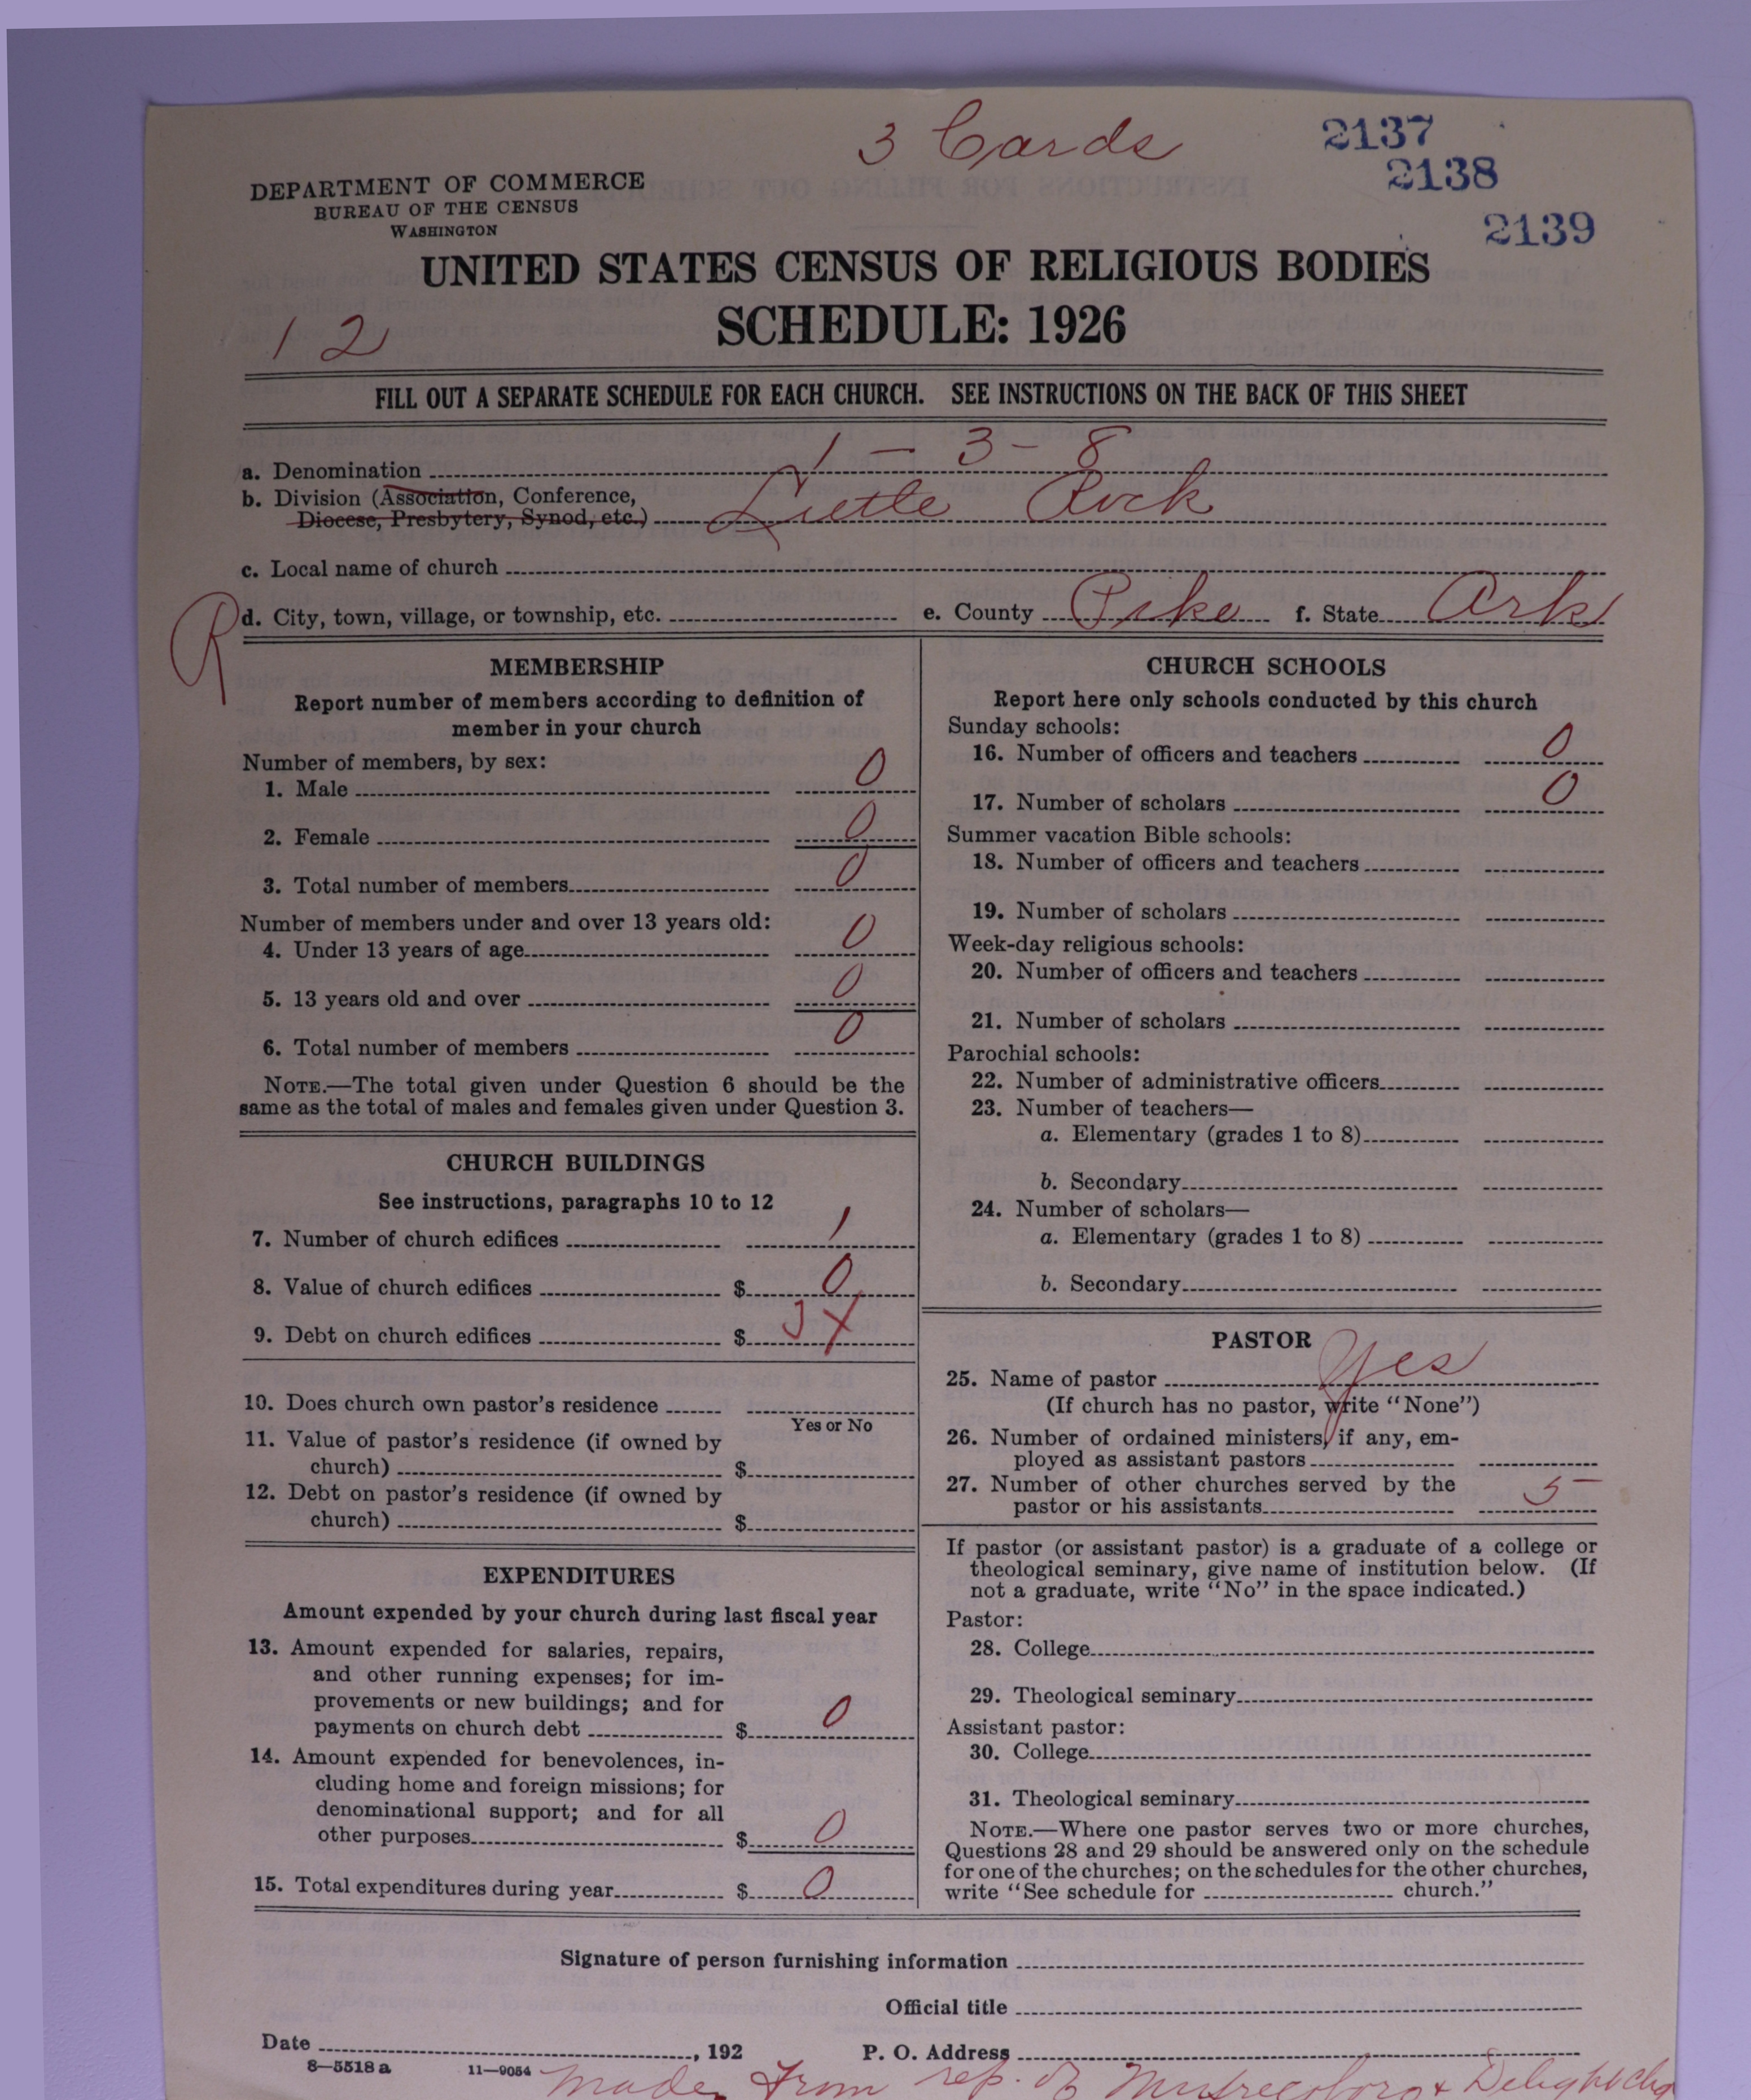 3 Cards
2137
2138
2139
DEPARTMENT OF COMMERCE
BUREAU OF THE CENSUS
WASHINGTON
UNITED STATES CENSUS OF RELIGIOUS BODIES
SCHEDULE: 1926
1 2
FILL OUT A SEPARATE SCHEDULE FOR EACH CHURCH. SEE INSTRUCTIONS ON THE BACK OF THIS SHEET
a. Denomination 1 - 3 - 8
b. Division (Association, Conference,
Diocese, Presbytery, Synod, etc.) Little Rock
c. Local name of church
R
d. City, town, village, or township, etc. e. County Pike f. State Ark
MEMBERSHIP
Report number of members according to definition of
member in your church
Number of members, by sex:
1. Male 0
2. Female 0
3. Total number of members 0
Number of members under and over 13 years old:
4. Under 13 years of age 0
5. 13 years old and over 0
6. Total number of members 0
NOTE.—The total given under Question 6 should be the
same as the total of males and females given under Question 3.
CHURCH BUILDINGS
See instructions, paragraphs 10 to 12
7. Number of church edifices 1
8. Value of church edifices $ 0
9. Debt on church edifices $ X
10. Does church own pastor's residence
Yes or No
11. Value of pastor's residence (if owned by
church) $
12. Debt on pastor's residence (if owned by
church) $
EXPENDITURES
Amount expended by your church during last fiscal year
13. Amount expended for salaries, repairs,
and other running expenses; for im-
provements or new buildings; and for
payments on church debt $ 0
14. Amount expended for benevolences, in-
cluding home and foreign missions; for
denominational support; and for all
other purposes $ 0
15. Total expenditures during year $ 0
CHURCH SCHOOLS
Report here only schools conducted by this church
Sunday schools:
16. Number of officers and teachers 0
17. Number of scholars 0
Summer vacation Bible schools:
18. Number of officers and teachers
19. Number of scholars
Week-day religious schools:
20. Number of officers and teachers
21. Number of scholars
Parochial schools:
22. Number of administrative officers
23. Number of teachers—
a. Elementary (grades 1 to 8)
b. Secondary
24. Number of scholars—
a. Elementary (grades 1 to 8)
b. Secondary
PASTOR
25. Name of pastor Yes
(If church has no pastor, write "None")
26. Number of ordained ministers, if any, em-
ployed as assistant pastors
27. Number of other churches served by the
pastor or his assistants 5
If pastor (or assistant pastor) is a graduate of a college or
theological seminary, give name of institution below. (If
not a graduate, write "No" in the space indicated.)
Pastor:
28. College
29. Theological seminary
Assistant pastor:
30. College
31. Theological seminary
NOTE.—Where one pastor serves two or more churches,
Questions 28 and 29 should be answered only on the schedule
for one of the churches; on the schedules for the other churches,
write "See schedule for church."
Signature of person furnishing information
Official title
Date , 192 P. O. Address
8—5518 a 11—9054
made from rep. of Murfreesboro & Delight chg